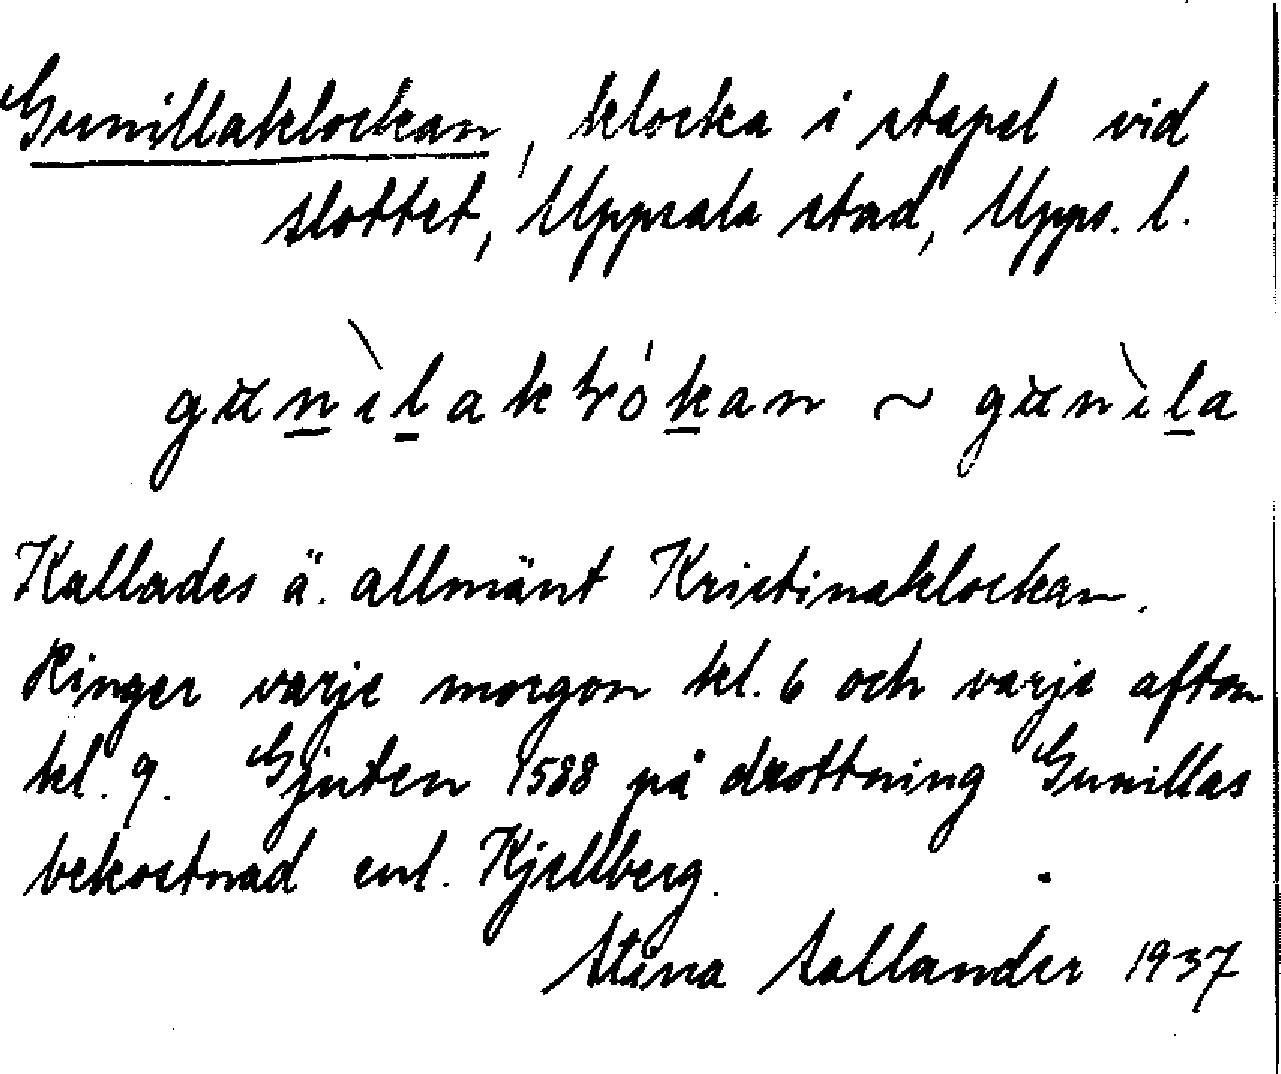 Gunillaklockan, klocka i stapel vid
slottet, Uppsala stad, Upps. l.
gɯnìlaklókan ~ gɯnìla
Kallades ä. allmänt Kristinaklockan.
Ringer varje morgon kl. 6 och varje afton
kl. 9. Gjuten 1588 på drottning Gunillas
bekostnad enl. Kjellberg.
Stina 1937